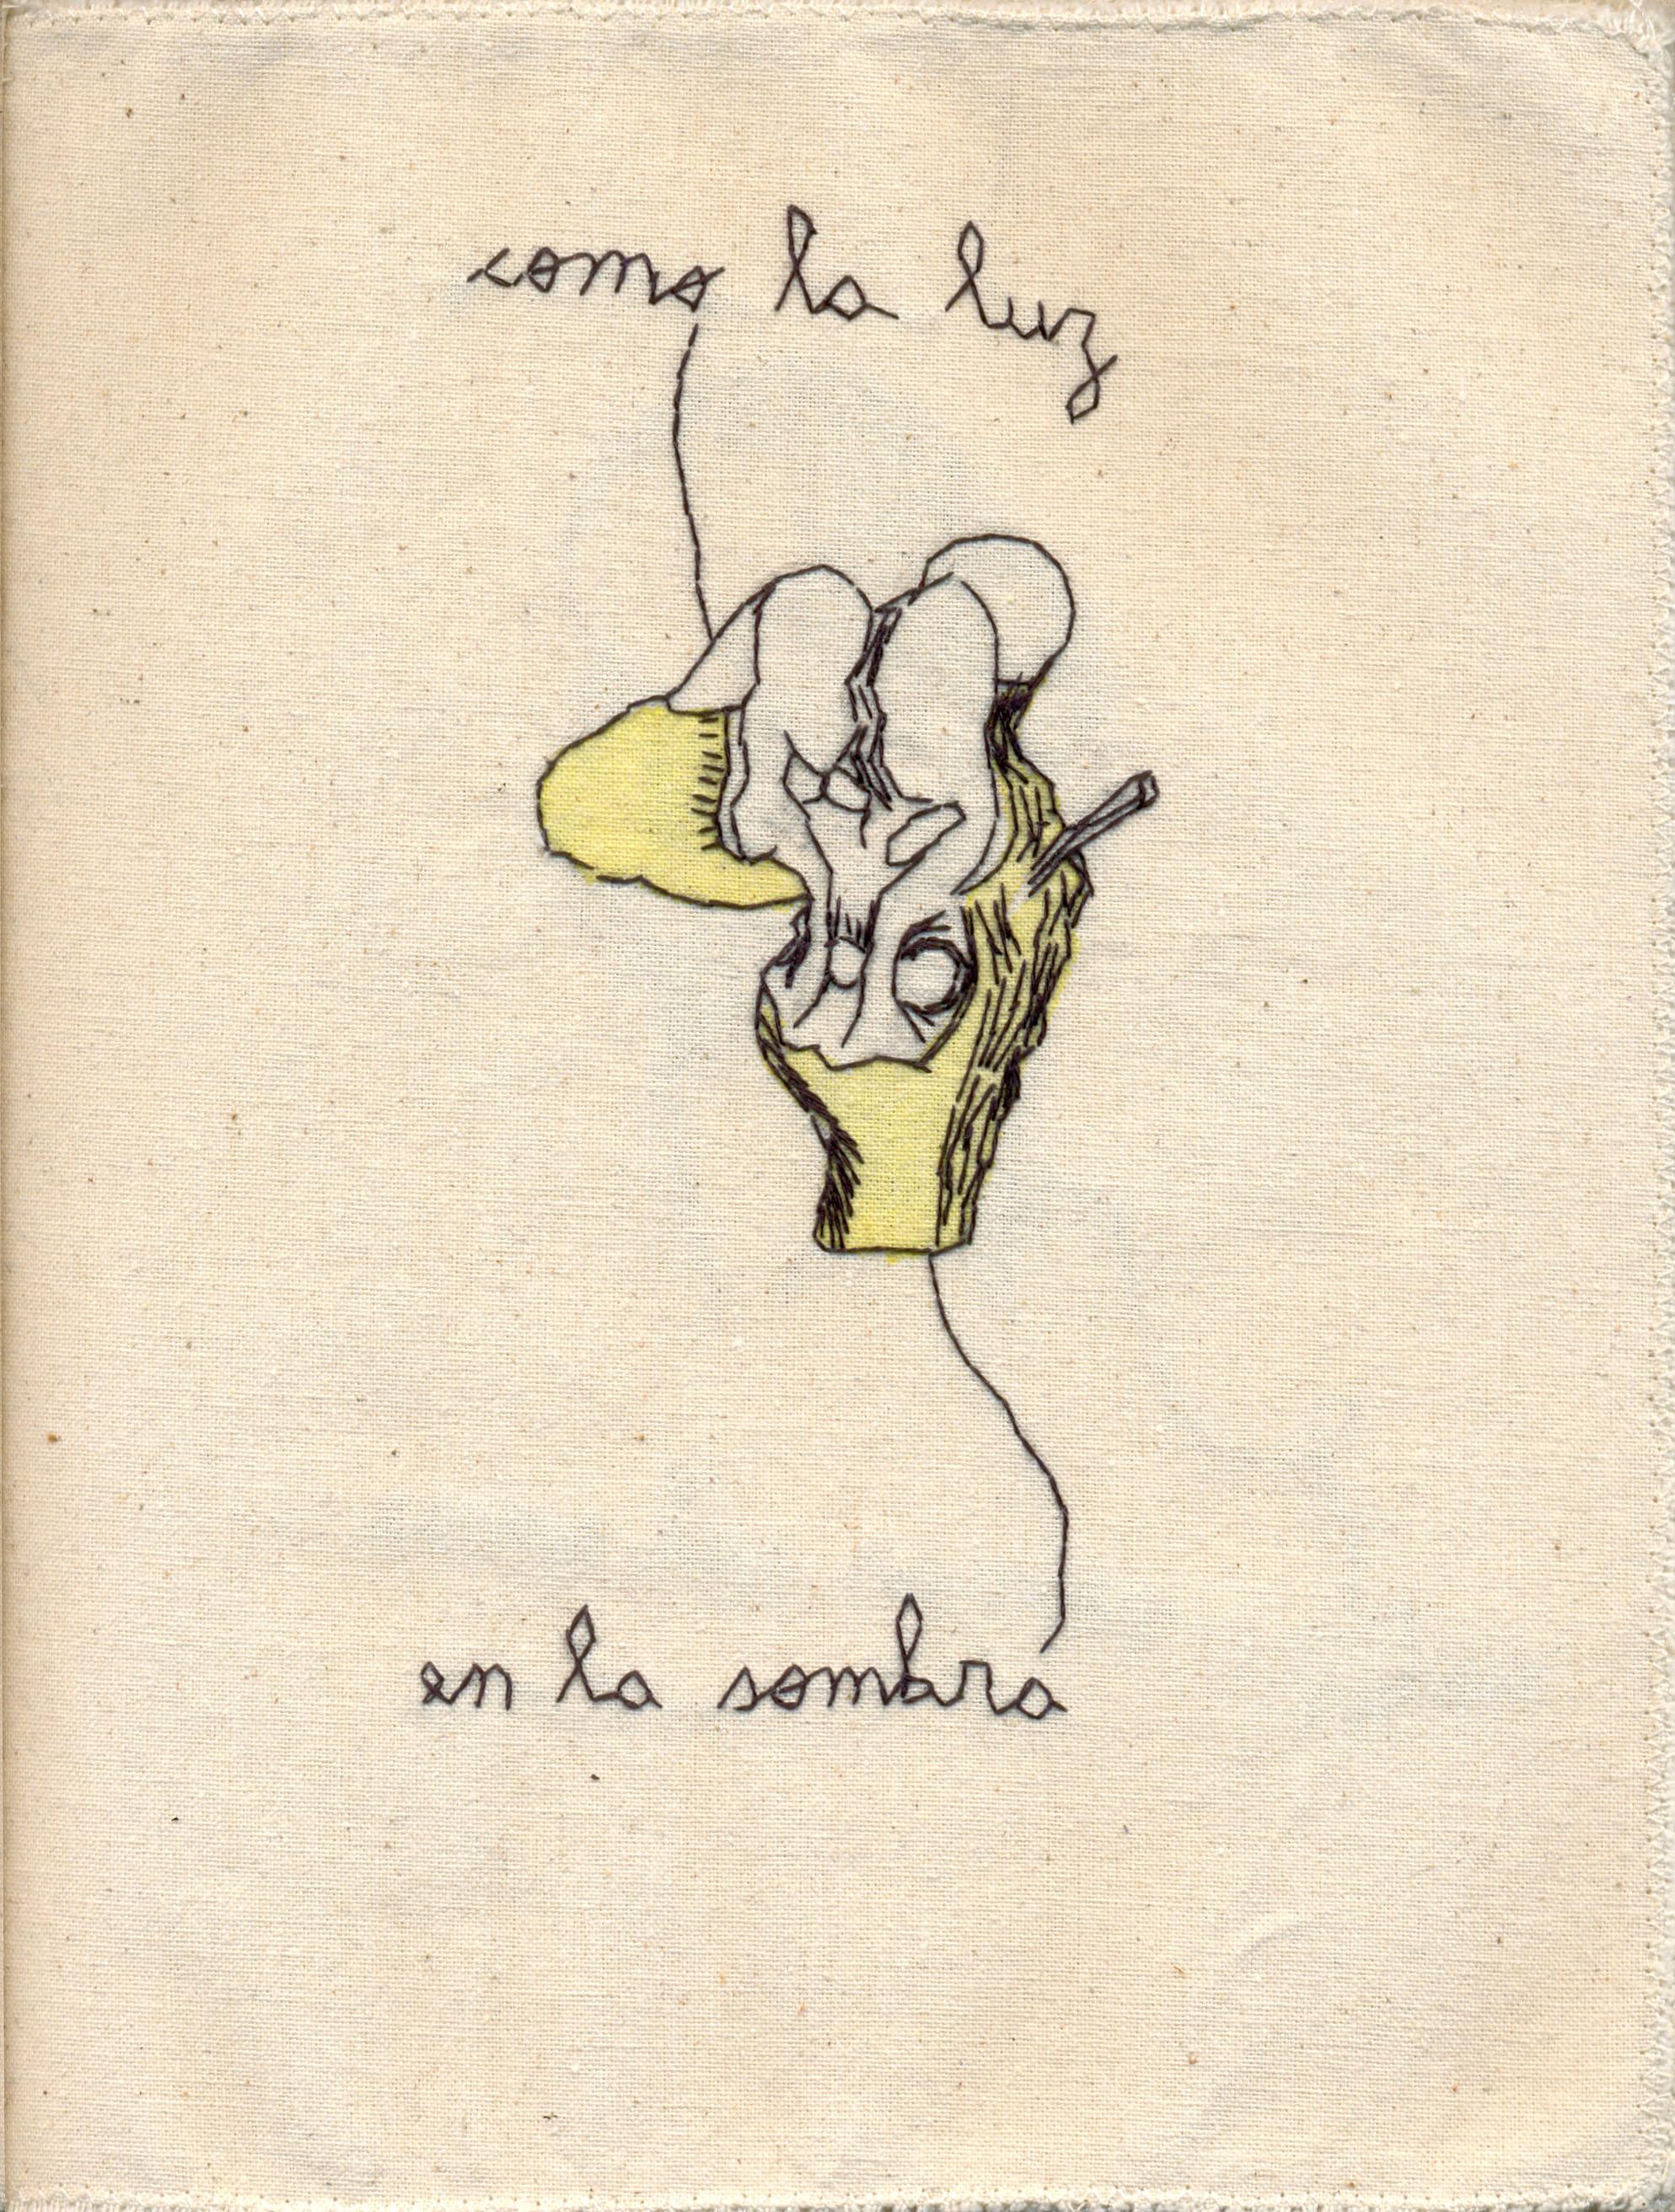 como la luz
en la sombra